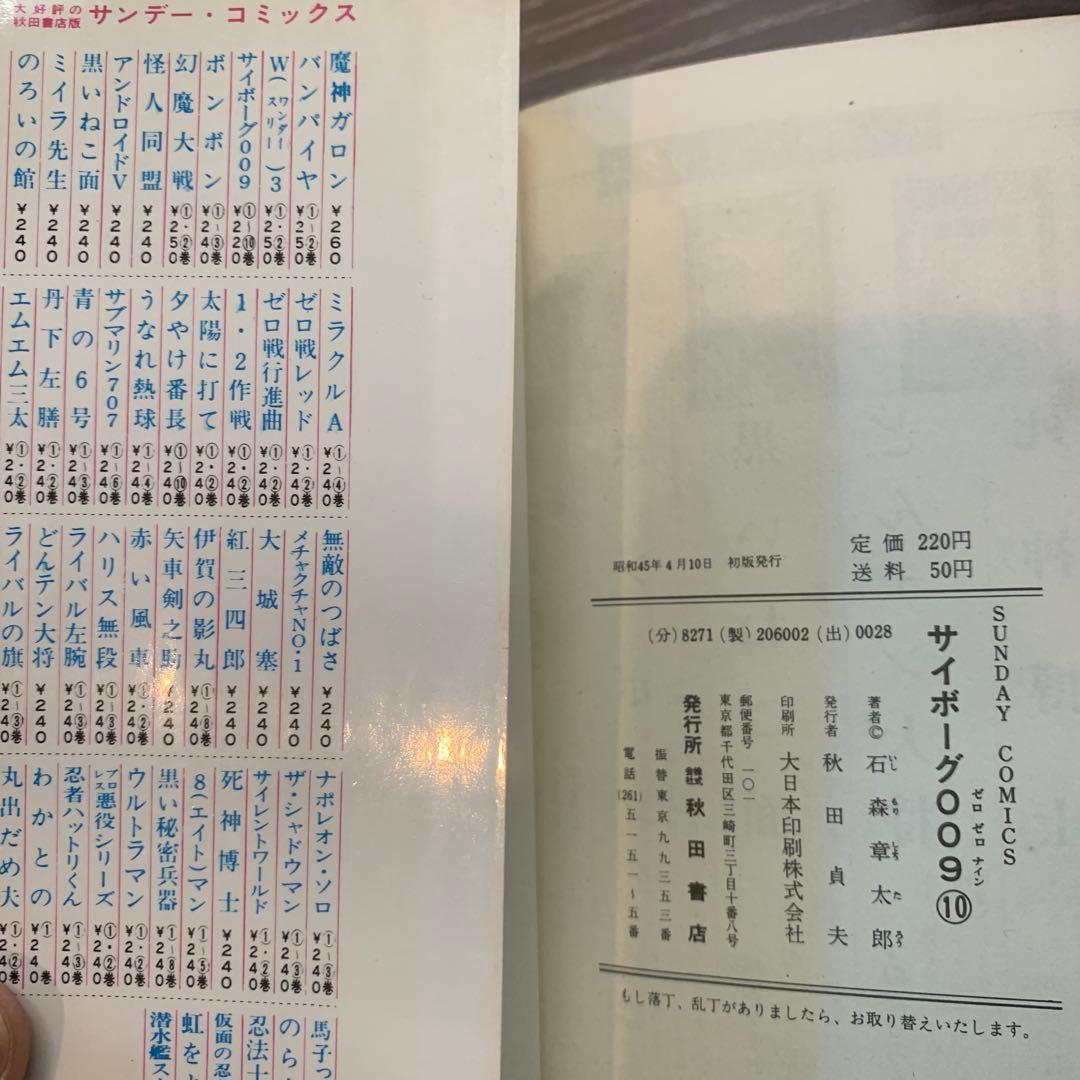 大好評の
秋田書店版
サンデー・コミックス
魔神ガロン ¥260
バンパイヤ ①・②巻 ¥250
W(ワンダースリー)3 ①・②巻 ¥250
サイボーグ009 ①~⑩巻 ¥220
ボンボン ①~③巻 ¥240
幻魔大戦 ①・②巻 ¥250
怪人同盟 ¥240
アンドロイドV ¥240
黒いねこ面 ¥240
ミイラ先生 ¥240
のろいの館 ¥240
ミラクルA ①~④巻 ¥240
ゼロ戦レッド ①・②巻 ¥240
ゼロ戦行進曲 ①・②巻 ¥240
1・2作戦 ①・②巻 ¥240
太陽に打て ①・②巻 ¥240
夕やけ番長 ①~⑩巻 ¥240
うなれ熱球 ①~④巻 ¥240
サブマリン707 ①~⑥巻 ¥240
青の6号 ①~③巻 ¥240
丹下左膳 ①・②巻 ¥240
エムエム三太 ①・②巻 ¥240
無敵のつばさ ¥240
メチャクチャNO・1 ¥240
大城塞 ¥240
紅三四郎 ¥240
伊賀の影丸 ①~⑧巻 ¥240
矢車剣之助 ¥240
赤い風車 ①・②巻 ¥240
ハリス無段 ①~③巻 ¥240
ライバル左腕 ①~③巻 ¥240
どんテン大将 ¥240
ライバルの旗 ①~③巻 ¥240
ナポレオン・ソロ ①~③巻 ¥240
ザ・シャドウマン ①~③巻 ¥240
サイレントワールド ①・②巻 ¥240
死神博士 ¥240
8(エイト)マン ①~⑤巻 ¥240
黒い秘密兵器 ①~⑧巻 ¥240
ウルトラマン ①・②巻 ¥240
プロレス悪役シリーズ ①・②巻 ¥240
忍者ハットリくん ①~③巻 ¥240
わかとの
丸出だめ夫 ①・②巻 ¥240
馬子っ
のら
忍法十
仮面の忍
虹を
潜水艦ス
定価 220円
送料 50円
昭和45年4月10日 初版発行
(分)8271(製)206002(出)0028
SUNDAY COMICS
サイボーグ009⑩
ゼロ ゼロ ナイン
著者© 石森章太郎
いし もり しょう た ろう
発行者 秋田貞夫
印刷所 大日本印刷株式会社
郵便番号 一〇一
東京都千代田区三崎町三丁目十番八号
発行所 株式会社 秋田書店
振替東京九九三五三番
電話(261)五一五一~五番
もし落丁、乱丁がありましたら、お取り替えいたします。